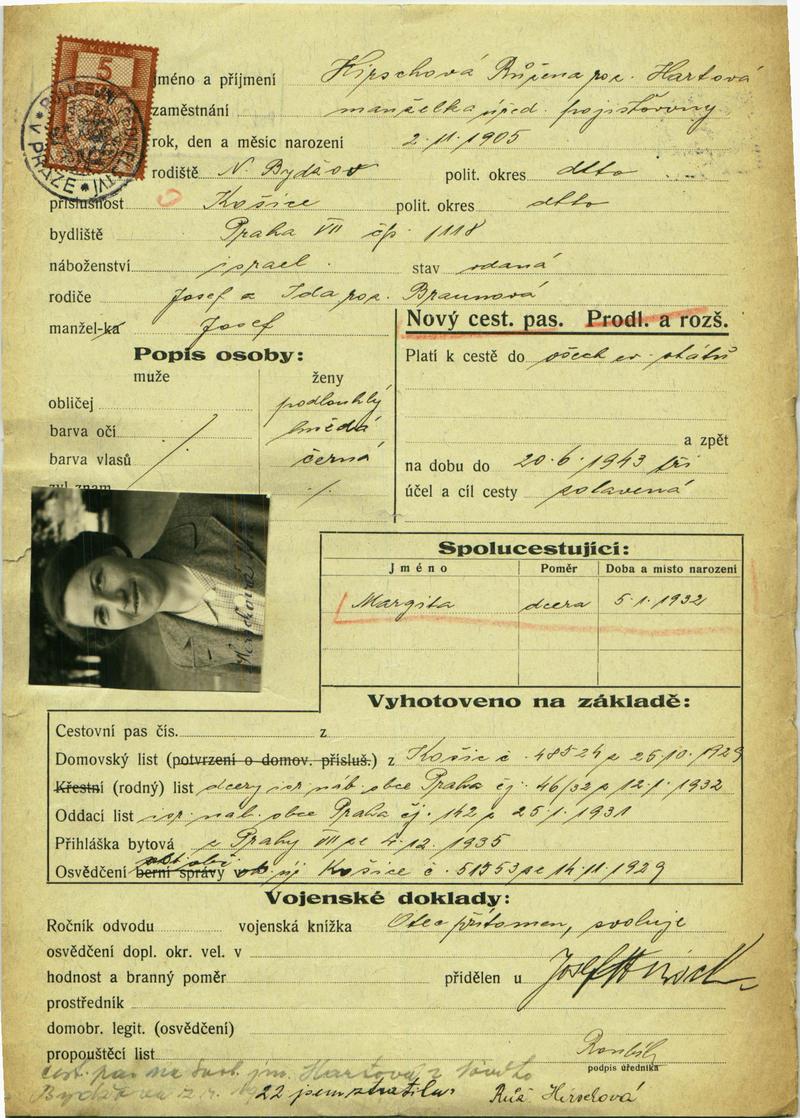 KOLEK
5
POLICEJNÍ ŘEDITELSTVÍ V PRAZE
Jméno a příjmení Hirschová Růžena roz. Hartová
zaměstnání manželka úřed. pojišťovny
rok, den a měsíc narození 2.11.1905
rodiště N. Bydžov polit. okres dtto
příslušnost Košice polit. okres dtto
bydliště Praha VII čp. 1118
náboženství israel. stav vdaná
rodiče Josef a Ida roz. Braunová
manžel-ka Josef
Nový cest. pas. Prodl. a rozš.
Popis osoby:
Platí k cestě do všech ev. států
muže ženy
obličej podlouhlý
barva očí hnědá
a zpět
barva vlasů černá
na dobu do 20.6.1943 tří
zvl. znam.
účel a cíl cesty zotavená
Hirschová
Spolucestující:
Jméno Poměr Doba a místo narození
Margita dcera 5.1.1932
Vyhotoveno na základě:
Cestovní pas čís. z
Domovský list (potvrzení o domov. přísluš.) z Košic č. 48524 z 25.10.1929
Křestní (rodný) list dcery isr. náb. obce Praha čj. 46/32 z 12.1.1932
Oddací list isr. nab. obce Praha čj. 142 z 25.1.1931
Přihláška bytová z Prahy VII ze 4.12.1935
Osvědčení berní správy Košice č. 51553 ze 14.11.1929
Vojenské doklady:
Ročník odvodu vojenská knížka Otec přítomen, svoluje
osvědčení dopl. okr. vel. v
hodnost a branný poměr přidělen u Josef Hirsch
prostředník
domobr. legit. (osvědčení)
propouštěcí list
podpis úředníka
cest. pas na svob. jm. Hartová z
Bydžova z r. 1922 jsem ztratila. Růž. Hirschová